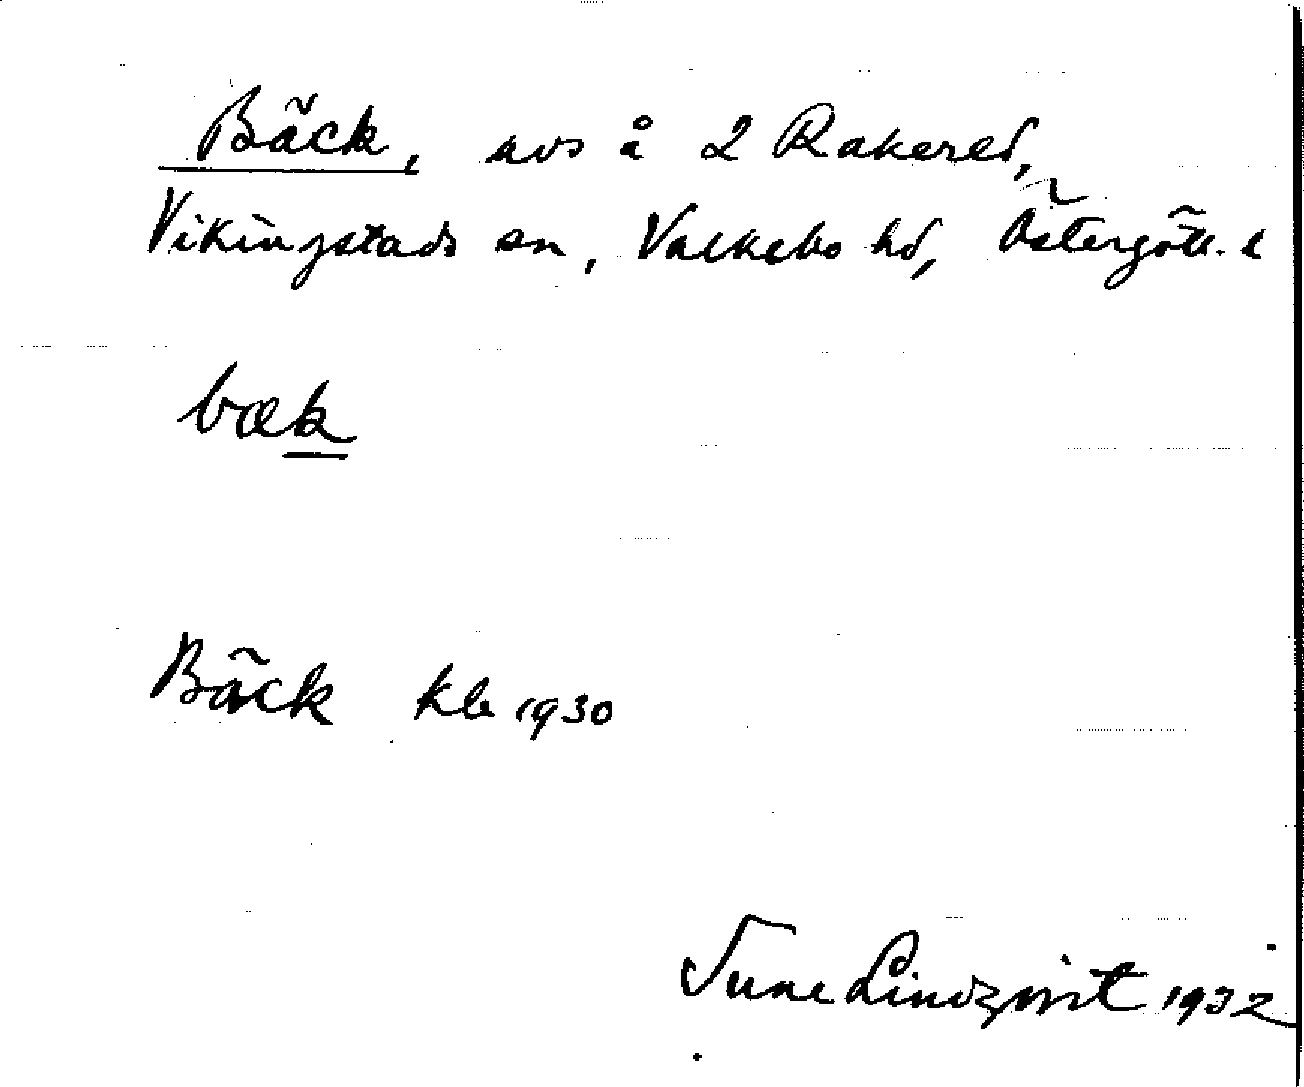 Bäck, avs å 2 Rakered,
Vikingstads sn, Valkebo hd, Östergötl. l
bæk
Bäck klb 1930
Sune Lindqvist 1932